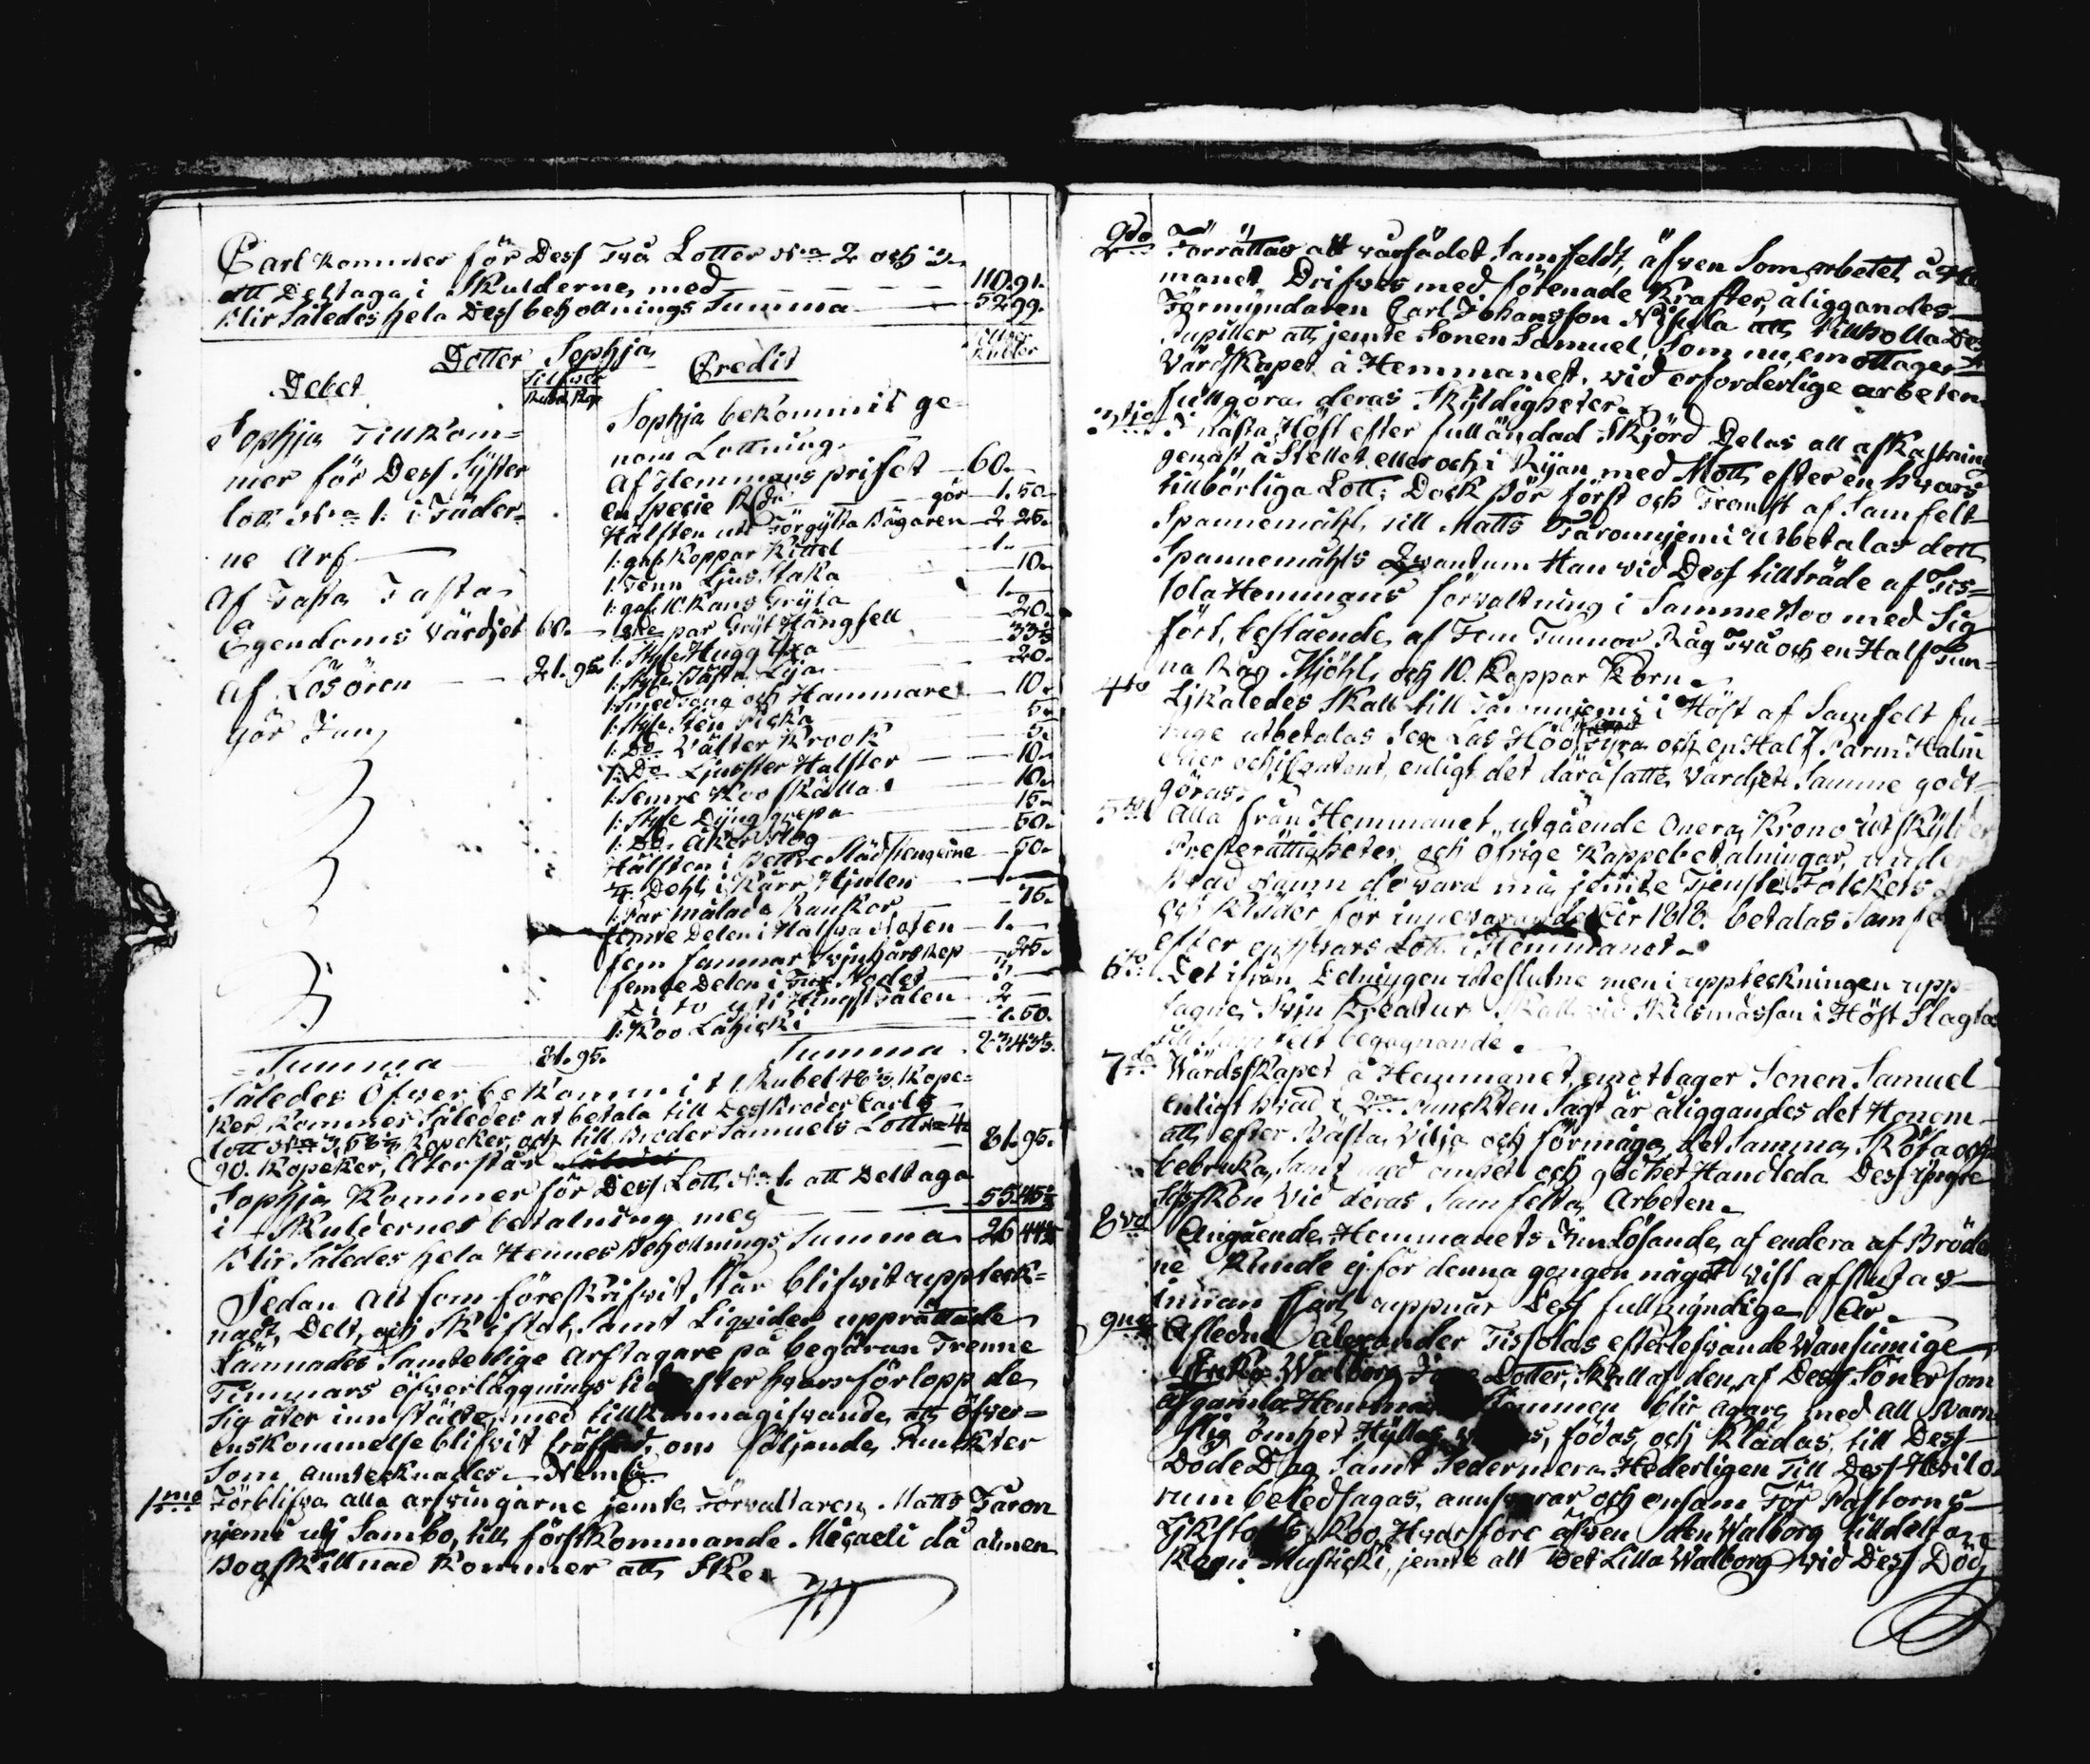 Carl kommer för Dess Två Lotter N:o 2 och 3.
att Deltaga i Skulderne, med 110.91.
blir Således hela Dess behollnings Summa 52.99.
Dotter Sophja
Debet
Silfver
Rubel Kop
Credit
Silfver
Rubler
Sophja Tillkom=
mer för Dess Syster
lott N:o 1. i Fäder=
ne Arf
Af Fasta
Egendoms värdjet 60.
Af Lösören 21.95.
gör Sum,
Sophja bekommit ge=
nom Lottning.
Af Hemmans priset 60.
en Specie R:d gör 1.50.
Hälften uti Förgylta Bägaren 2.25.
1: gal: Koppar Kittel 1.
1: Tenn Ljus Staka 10.
1: gal: 10. Kans Gryta 1.
par Gryt Hängsell 20.
1: Styk. Hugg Yxa 33⅓
1: Styk. Bästa Lija 20.
1: Smedtong och Hammare 10.
1: Styk. Sten Picka 5.
1: Do Välter Krook 5.
1: Do Ljuster Halster 10.
1: Semre Koo Skälla 10.
1: Styk Dyng grepa 15.
1: Do Åker Plog 50.
Hälften i Bettre Slädstengerne 50.
4 Dehl i Kärr Hjulen
1: Par målade Rankor 75.
femte Delen i Halfva Noten 1.
fem famnar Svinhårs Rep 25.
femte Delen i Två Noder 3.
Dito uti Hingst Fålen 2.
1: Koo Lähicki 1.50.
Summa 81.95.
Summa 83.43⅓.
Således Öfver bekommit 1 Rubel 48⅓ Kope=
ker Kommer Således at betala till Dess Broder Carls
lott N:o 3, 58⅓ Kopeker, och till Broder Samuels Lott N:o 4.
90. Kopeker, Återstår 81.95.
Sophja Kommer för Dess Lott N:o 1. att Deltaga
i Skuldernes betalning med 55.45½
blir Således hela Hennes Behollnings Summa 26.44½
Sedan Allt som föreskrifvit står blifvit uppteck=
nadt, Delt, och Skiftat, samt Liqvider upprättade
Lämnades Samtellige Arftagare på begäran Trenne
Timmars öfverläggnings tid efter hvars förlopp de
Sig åter innstälte, med tillkännagifvande att öfver=
enskommelse blifvit träffad, om följande Puncter
Som anntecknades Neml:
1mo Förblifva alla arfvingarne jemte Förvaltaren Matts Taron
njemi uti Sambo, till förstkommande Micaeli då almen
Boaskillnad kommer att Ske.
2do Förrättas att vårsädet Samfeldt, äfven Som arbetet å He
manet Drifves med förenade Krafter, åliggandes
Förmyndaren Carl Johansson Nisula att tillholla Des
Pupiller att jemte Sonen Samuel, Som nu emottager
Värdskapet å Hemmanet, vid erforderlige arbeten
fullgöra deras Skyldigheter.
3tjo I nästa Höst efter fulländad Skjörd Delas all afkastning
genast å Stellet eller och i Rijan med Mått, efter en hvars
tillbörliga Lott; Dock Bör först och Främst af Samfelt
Spannemåhl till Matts Taronnjemi utbetalas dett
Spannemåhls Qvantum Han vid Dess tillträde af Tis=
sola Hemmans förvaltning i Samme Boo med Sig
fört, bestående af Fem Tunnor Råg Två och en Half Tun=
na Råg Mjöhl, och 10. Kappar Korn.
4to Likaledes Skall till Taronnjemi i Höst af Samfelt fu=
rage utbetalas Sex Las Höö, Fyra och en Half Parm Halm
eller och i Contant, enligt det därå satte Värdjet Samme godt=
göras.
5to Alla från Hemmanet utgående Onera, Krono Utskylder
Presterättigheter, och öfrige Kappebetalningar, under
hvad Namn de vara må jemte Tjenste Folckets
och Kläder för innevarande År 1818. betalas Samfe
efter en hvars Lott i Hemmanet.
6to Det ifrån Delningen uteslutne men i uppteckningen upp=
tagne Svin Kreatur Skall vid Mikelsmässan i Höst Slagtas
till Samfelt begagnande.
7de Wärdskapet å Hemmanet emottager Sonen Samuel
enligt hvad i 2dra Punckten Sagt är åliggandes det Honom
att efter Bästa Vilja och förmåga det Samma Sköta och
bebruka, Samt med ömhet och godhet Handleda Dess Yngre
Sysskon Vid deras Samfelta Arbeten.
8vo Angående Hemmanets Innlösande, af endera af Bröder
ne Kunde ej för denna gongen något vist afslutas
innan Carl uppnår Dess fullmyndige År.
9no Afledne Alexander Tissolas efterlefvande Wansinnige
Enka Walborg Dotter, Skall af den af Dess Söner som
af gamla Hemmanet Kommer blir ägare, med all Barn
slig ömhet Hyllas, födas, och Klädas, till Dess
Döde Dag Samt Sedermera Hederligen Till Dess Hvilo
rum beledsagas, annsvarar och ensam För Pastorns
Likstohls Koo, Hvarföre äfven den Walborg tilldelta
Kon Musticki, jemte allt Det Lilla Walborg vid Dess Död